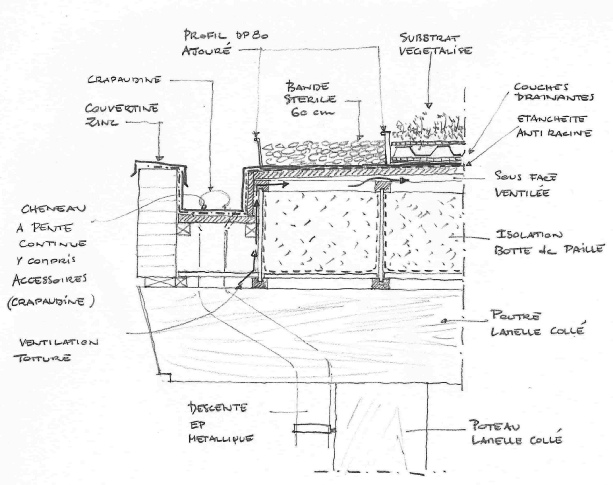 PROFIL DP 80
AJOURÉ
SUBSTRAT
VEGETALISE
CRAPAUDINE
BANDE
STERILE
60 cm
COUVERTINE
ZINC
COUCHES
DRAINANTES
ETANCHEITE
ANTI RACINE
SOUS FACE
VENTILÉE
CHENEAU
A PENTE
CONTINUE
Y COMPRIS
ACCESSOIRES
(CRAPAUDINE)
ISOLATION
BOTTE de PAILLE
VENTILATION
TOITURE
POUTRE
LAMELLE COLLÉ
DESCENTE
EP
METALLIQUE
POTEAU
LAMELLE COLLÉ